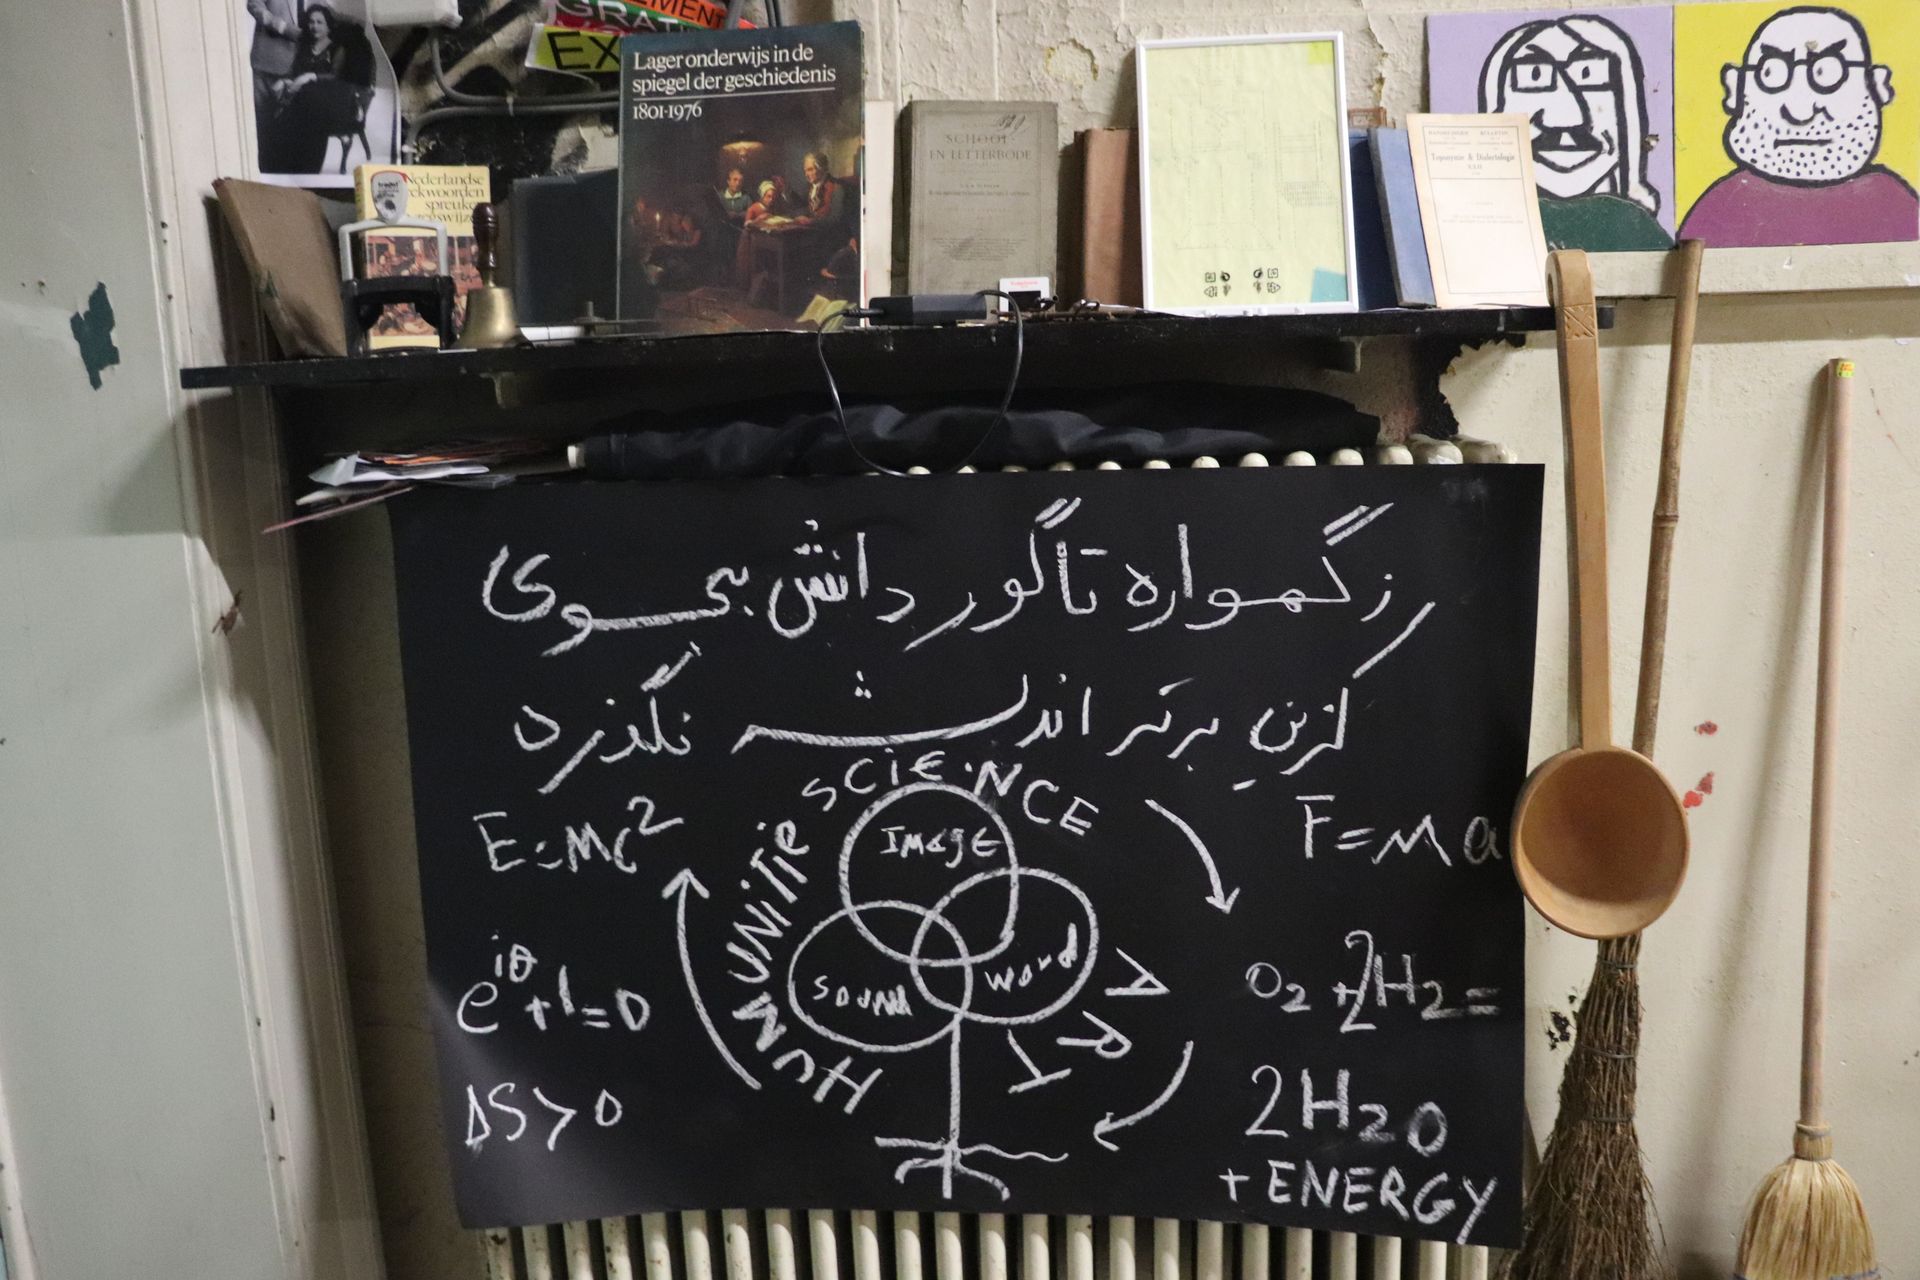 EMENT
GRAT
EX
Lager onderwijs in de
spiegel der geschiedenis
1801-1976
Nederlandse
ekwoorden
spreuken
SCHOOL
EN LETTERBODE
Toponymie & Dialectologie
ز گهواره تا گور دانش بجوی
کزین برتر اندیشه برنگذرد
SCIENCE
HUMUNITIE
ART
IMAGE
SOUND
WORD
E=MC²
e^iθ+1=0
ΔS>0
F=Ma
O₂+2H₂=
2H₂O
+ENERGY